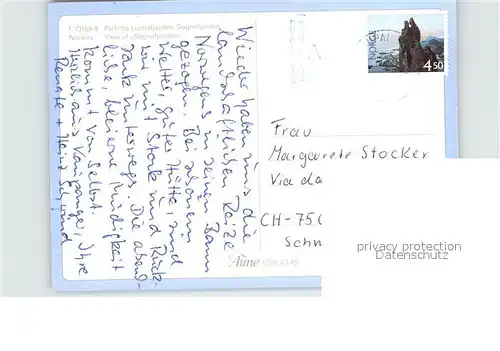 F-13153-9 Parti fra Lustrafjorden, Sognefjorden
Norway. View of Sognefjorden
Wieder haben uns die
landschaftlichen Reize
Norwegens in seinen Bann
gezogen. Bei schönem
Wetter, guter Hütte, sind
wir mit Stock und Ruck-
sack unterwegs. Die abend-
liche, bleierne Müdigkeit
kommt von selbst.
Herzlich aus Ihre
Renate + Heinz
NORGE
4 50
Frau
Margarete Stocker
Via da
CH-750
Schn
Aune
privacy protection
Datenschutz